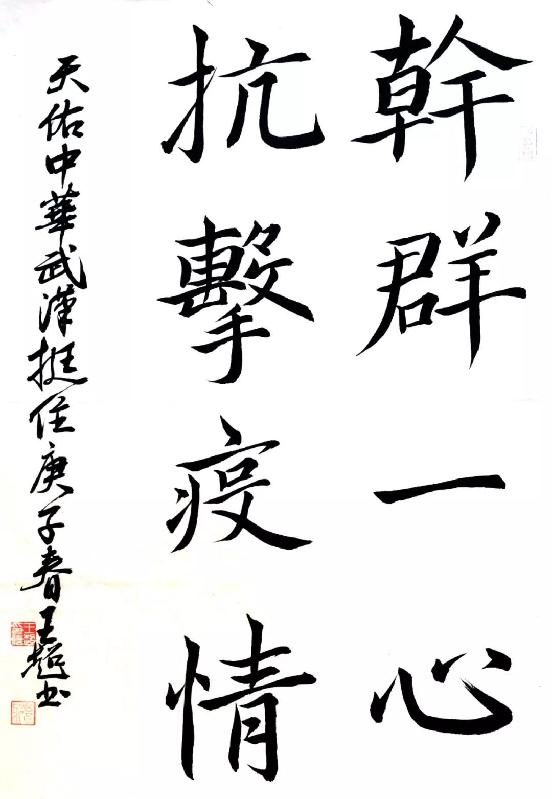 幹群一心
抗擊疫情
天佑中華武漢挺住庚子春王超书